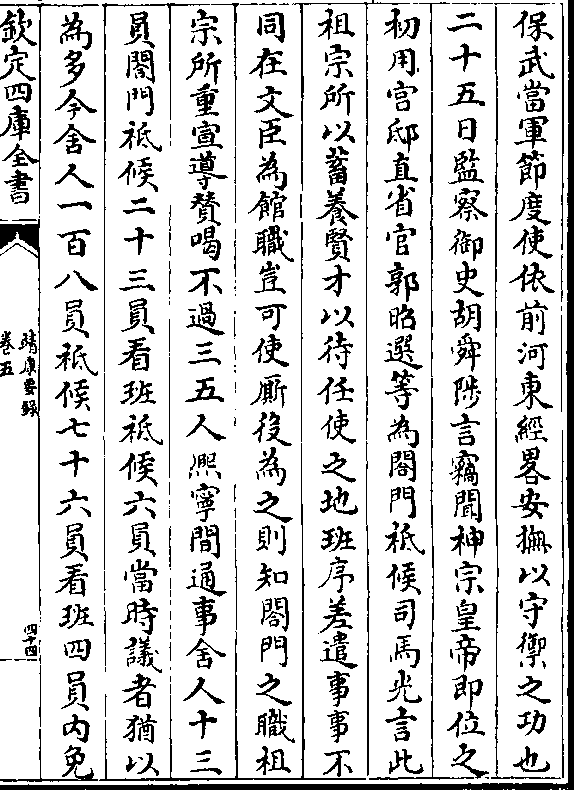 保武當軍節度使依前河東經畧安撫以守禦之功也
二十五日監察御史胡舜陟言竊聞神宗皇帝即位之
初用宫邸直省官郭昭選等為閤門祗候司馬光言此
祖宗所以蓄養賢才以待任使之地班序差遣事事不
同在文臣為館職豈可使厮役為之則知閤門之職祖
宗所重宣導贊喝不過三五人熈寧間通事舍人十三
員閤門祗候二十三員看班祗候六員當時議者猶以
為多今舍人一百八員祗候七十六員看班四員内免
欽定四庫全書
靖康要錄
卷五
四十四